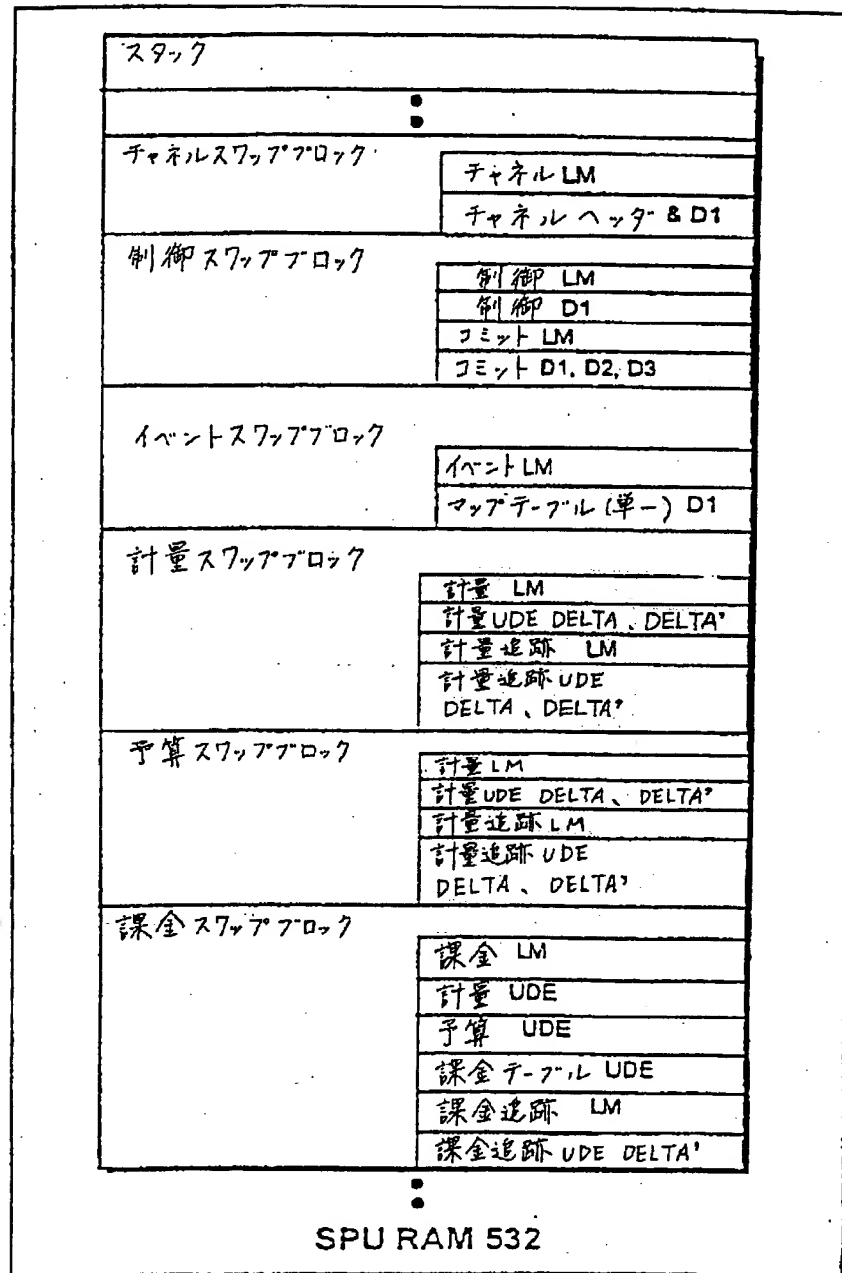 スタック
チャネルスワップブロック
チャネル LM
チャネル ヘッダ & D1
制御スワップブロック
制御 LM
制御 D1
コミット LM
コミット D1, D2, D3
イベントスワップブロック
イベント LM
マップテーブル (単一) D1
計量スワップブロック
計量 LM
計量UDE DELTA、DELTA'
計量追跡 LM
計量追跡 UDE
DELTA、DELTA'
予算スワップブロック
計量LM
計量UDE DELTA、DELTA'
計量追跡LM
計量追跡 UDE
DELTA、DELTA'
課金スワップブロック
課金 LM
計量 UDE
予算 UDE
課金テーブル UDE
課金追跡 LM
課金追跡 UDE DELTA'
SPU RAM 532